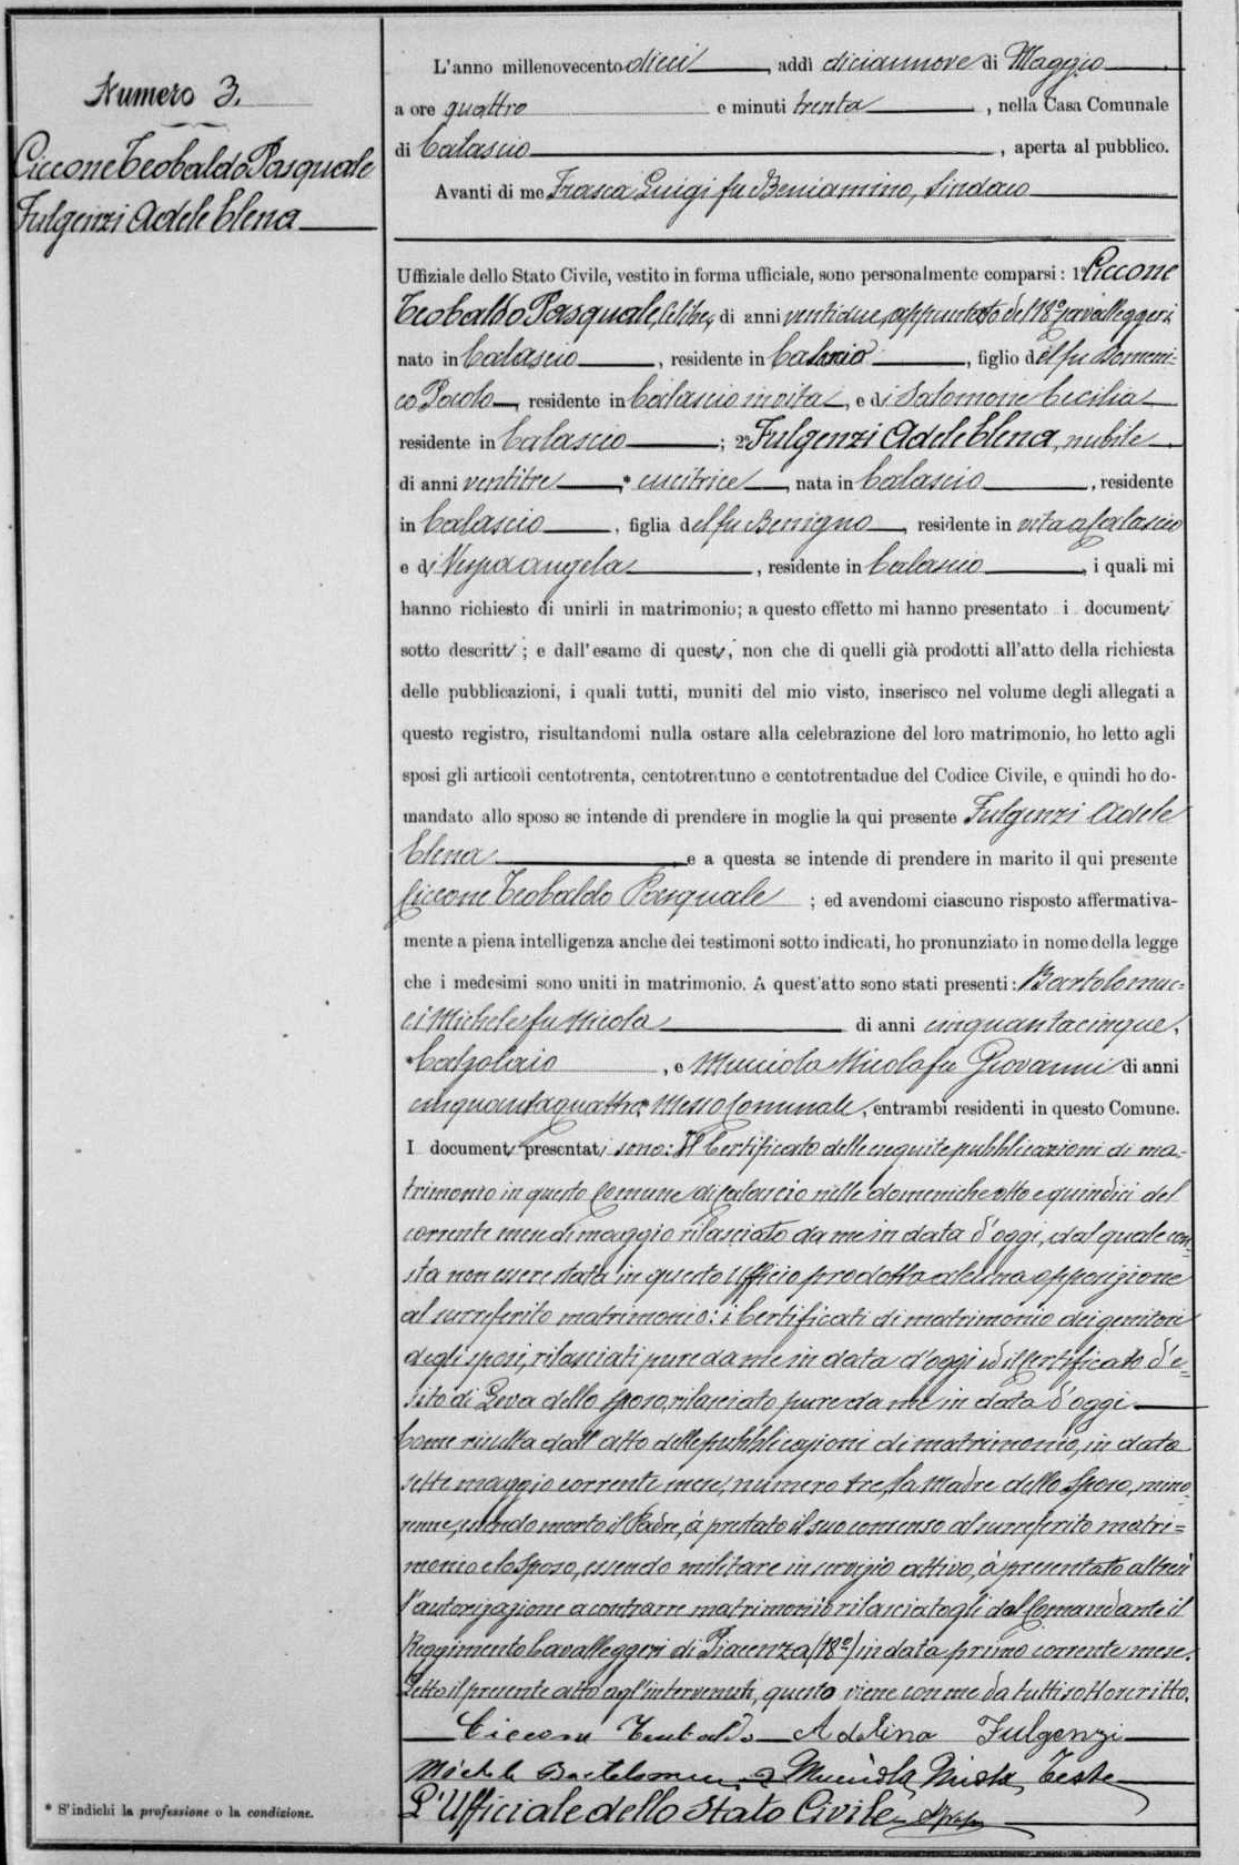 Numero 3.
Ciccone Teobaldo Pasquale
Fulgenzi Adele Elena
L'anno millenovecento dieci, addì diciannove di Maggio
a ore quattro e minuti trenta, nella Casa Comunale
di Calascio, aperta al pubblico.
Avanti di me Frasca Luigi fu Beniamino, Sindaco
Uffiziale dello Stato Civile, vestito in forma ufficiale, sono personalmente comparsi: 1º Ciccone
Teobaldo Pasquale, celibe, di anni ventidue, appuntato del 18º cavalleggeri
nato in Calascio, residente in Calascio, figlio del fu Domeni-
co Paolo, residente in Calascio in vita, e di Salomone Cecilia
residente in Calascio; 2º Fulgenzi Adele Elena, nubile
di anni ventitre, * cucitrice, nata in Calascio, residente
in Calascio, figlia del fu Benigno, residente in vita a Calascio
e di Vespa Angela, residente in Calascio, i quali mi
hanno richiesto di unirli in matrimonio; a questo effetto mi hanno presentato i documenti
sotto descritti; e dall'esame di questi, non che di quelli già prodotti all'atto della richiesta
delle pubblicazioni, i quali tutti, muniti del mio visto, inserisco nel volume degli allegati a
questo registro, risultandomi nulla ostare alla celebrazione del loro matrimonio, ho letto agli
sposi gli articoli centotrenta, centotrentuno e centotrentadue del Codice Civile, e quindi ho do-
mandato allo sposo se intende di prendere in moglie la qui presente Fulgenzi Adele
Elena e a questa se intende di prendere in marito il qui presente
Ciccone Teobaldo Pasquale; ed avendomi ciascuno risposto affermativa-
mente a piena intelligenza anche dei testimoni sotto indicati, ho pronunziato in nome della legge
che i medesimi sono uniti in matrimonio. A quest'atto sono stati presenti: Bartolomuc=
ci Michele fu Nicola di anni cinquantacinque,
* Calzolaio, e Mucciola Nicola fu Giovanni di anni
cinquantaquattro * Messo Comunale, entrambi residenti in questo Comune.
I documenti presentati sono: Il Certificato delle eseguite pubblicazioni di ma-
trimonio in questo Comune di Calascio nelle domeniche otto e quindici del
corrente mese di maggio rilasciato da me in data d'oggi, dal quale con-
sta non essere stata in questo Ufficio prodotta alcuna opposizione
al surreferito matrimonio: i Certificati di matrimonio dei genitori
degli sposi, rilasciati pure da me in data d'oggi ed il Certificato d'e=
sito di Leva dello sposo, rilasciato pure da me in data d'oggi.
Come risulta dall'atto delle pubblicazioni di matrimonio, in data
sette maggio corrente mese, numero tre, la Madre dello Sposo, mino-
renne, essendo morto il Padre, à prestato il suo consenso al surreferito matri=
monio e lo Sposo, essendo militare in servizio attivo, à presentato altresì
l'autorizzazione a contrarre matrimonio rilasciatogli dal Comandante il
Reggimento Cavalleggeri di Piacenza (18º) in data primo corrente mese.
Letto il presente atto agl'intervenuti, questo viene con me da tutti sottoscritto.
Ciccone Teobaldo Adelina Fulgenzi
Michele Bartolomucci Mucciola Nicola Teste
L'Ufficiale dello Stato Civile
* S'indichi la professione o la condizione.